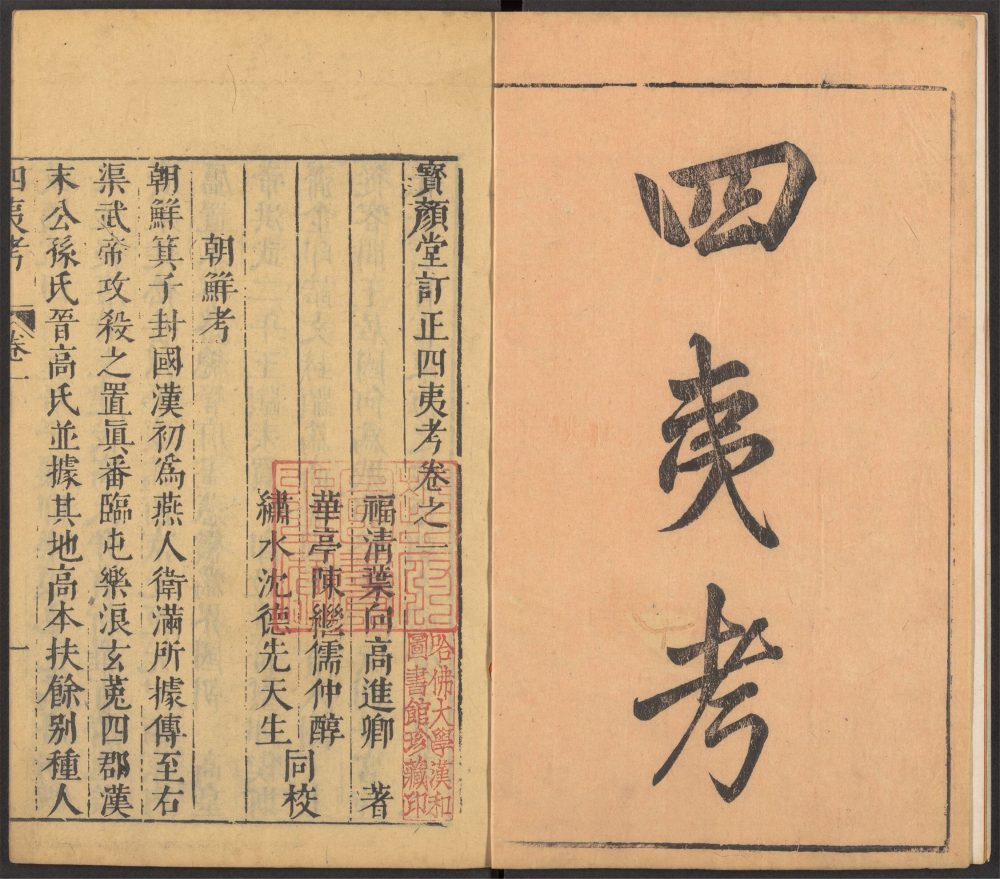 四夷考
寶顏堂訂正四夷考卷之一
福清葉向高進卿 著
華亭陳繼儒仲醇
繡水沈德先天生 同校
朝鮮考
朝鮮箕子封國漢初爲燕人衛滿所據傳至右
渠武帝攻殺之置眞番臨屯樂浪玄菟四郡漢
末公孫氏晉高氏並據其地高本扶餘别種人
四夷考 卷一 一
哈佛大學漢和
圖書館珍藏印